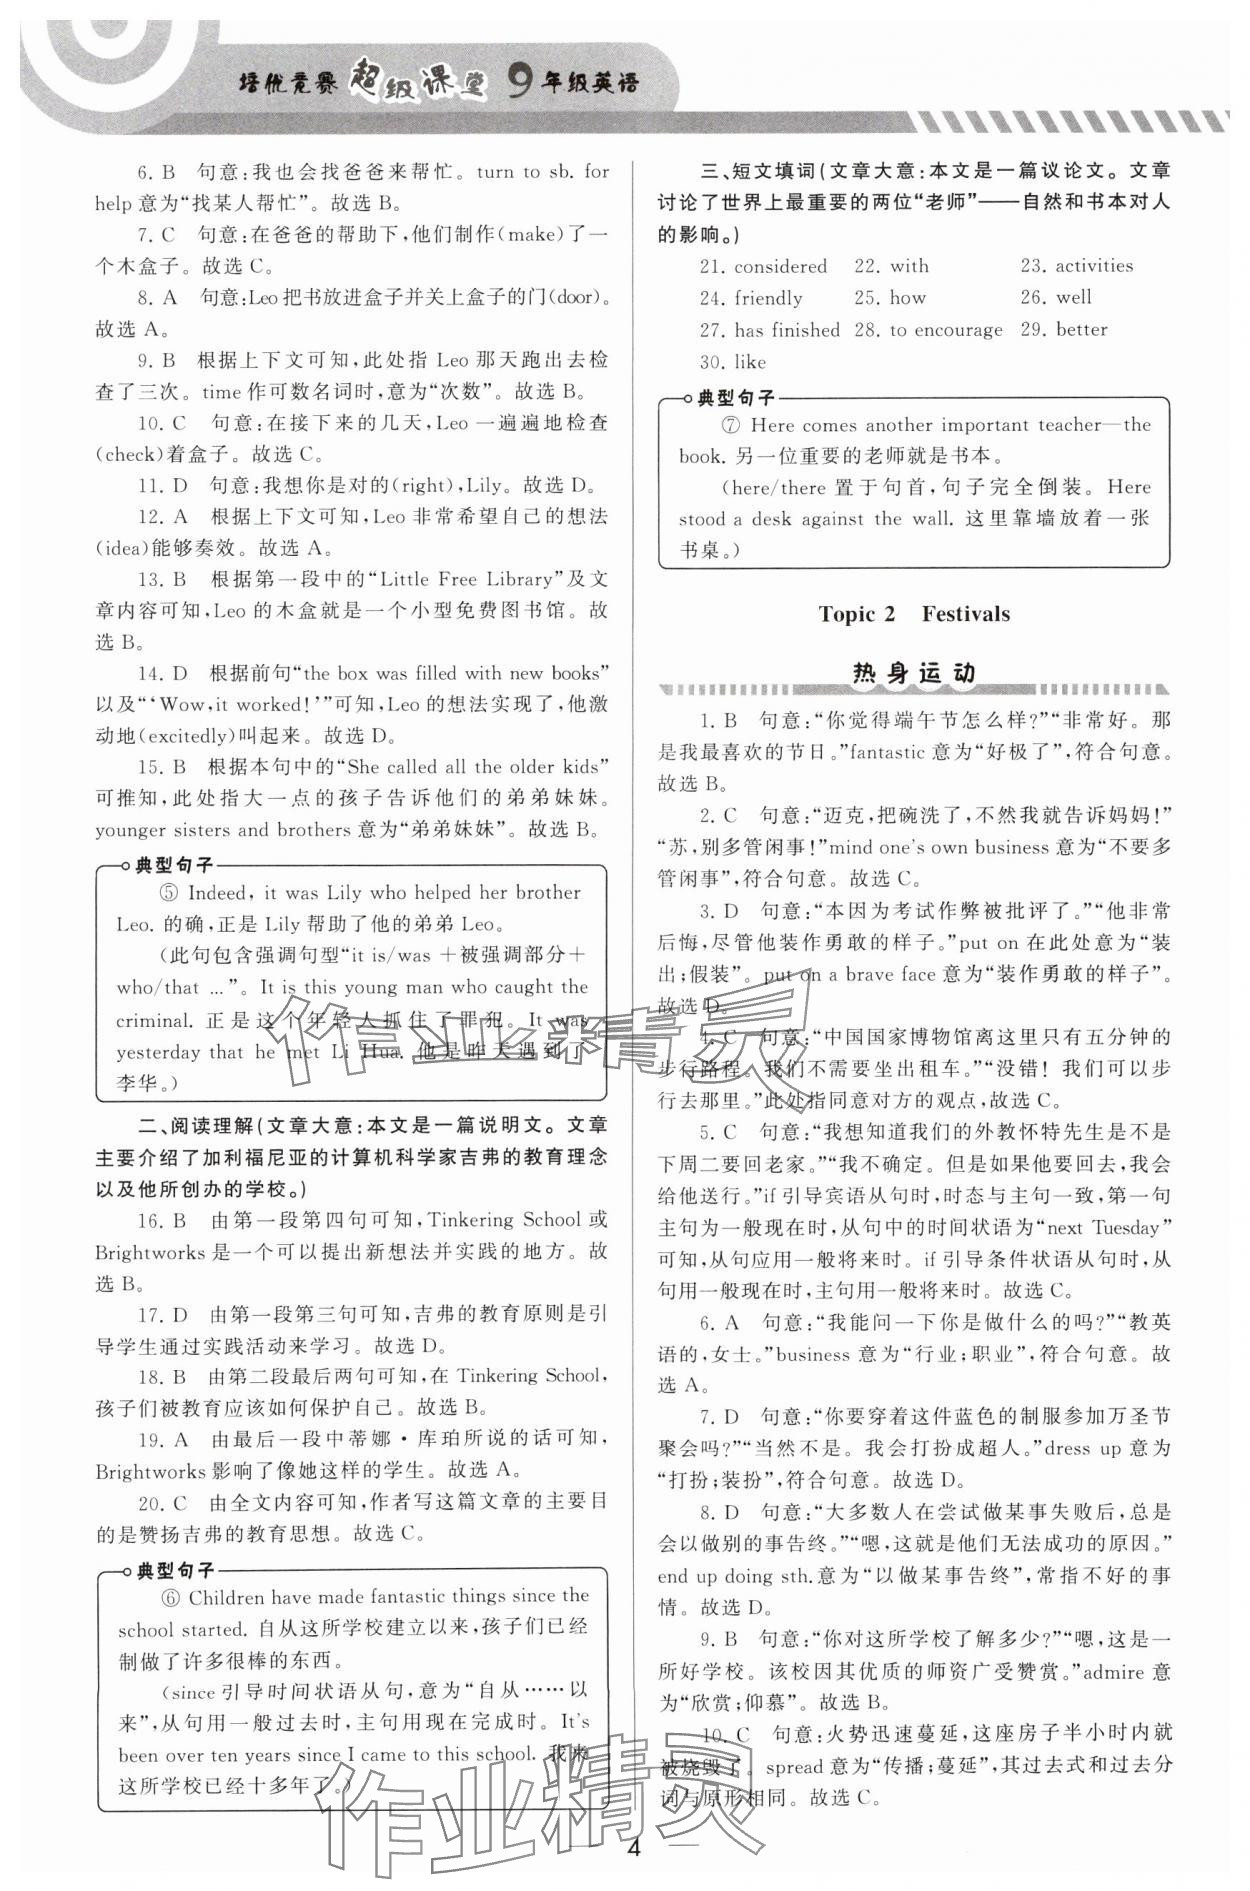 培优竞赛 超级课堂 9年级英语
6. B 句意:我也会找爸爸来帮忙。turn to sb. for
help 意为“找某人帮忙”。故选 B。
7. C 句意:在爸爸的帮助下,他们制作(make)了一
个木盒子。故选 C。
8. A 句意:Leo 把书放进盒子并关上盒子的门(door)。
故选 A。
9. B 根据上下文可知,此处指 Leo 那天跑出去检
查了三次。time 作可数名词时,意为“次数”。故选 B。
10. C 句意:在接下来的几天,Leo 一遍遍地检查
(check)着盒子。故选 C。
11. D 句意:我想你是对的(right),Lily。故选 D。
12. A 根据上下文可知,Leo 非常希望自己的想法
(idea)能够奏效。故选 A。
13. B 根据第一段中的“Little Free Library”及文
章内容可知,Leo 的木盒就是一个小型免费图书馆。故
选 B。
14. D 根据前句“the box was filled with new books”
以及“‘Wow,it worked!’”可知,Leo 的想法实现了,他激
动地(excitedly)叫起来。故选 D。
15. B 根据本句中的“She called all the older kids”
可推知,此处指大一点的孩子告诉他们的弟弟妹妹。
younger sisters and brothers 意为“弟弟妹妹”。故选 B。
典型句子
⑤ Indeed, it was Lily who helped her brother
Leo. 的确,正是 Lily 帮助了他的弟弟 Leo。
(此句包含强调句型“it is/was ＋被强调部分＋
who/that …”。It is this young man who caught the
criminal. 正是这个年轻人抓住了罪犯。It was
yesterday that he met Li Hua. 他是昨天遇到了
李华。)
二、阅读理解(文章大意:本文是一篇说明文。文章
主要介绍了加利福尼亚的计算机科学家吉弗的教育理念
以及他所创办的学校。)
16. B 由第一段第四句可知,Tinkering School 或
Brightworks 是一个可以提出新想法并实践的地方。故
选 B。
17. D 由第一段第三句可知,吉弗的教育原则是引
导学生通过实践活动来学习。故选 D。
18. B 由第二段最后两句可知,在 Tinkering School,
孩子们被教育应该如何保护自己。故选 B。
19. A 由最后一段中蒂娜·库珀所说的话可知,
Brightworks 影响了像她这样的学生。故选 A。
20. C 由全文内容可知,作者写这篇文章的主要目
的是赞扬吉弗的教育思想。故选 C。
典型句子
⑥ Children have made fantastic things since the
school started. 自从这所学校建立以来,孩子们已经
制做了许多很棒的东西。
(since 引导时间状语从句,意为“自从……以
来”,从句用一般过去时,主句用现在完成时。It's
been over ten years since I came to this school. 我来
这所学校已经十多年了。)
三、短文填词(文章大意:本文是一篇议论文。文章
讨论了世界上最重要的两位“老师”——自然和书本对人
的影响。)
21. considered 22. with 23. activities
24. friendly 25. how 26. well
27. has finished 28. to encourage 29. better
30. like
典型句子
⑦ Here comes another important teacher—the
book. 另一位重要的老师就是书本。
(here/there 置于句首,句子完全倒装。Here
stood a desk against the wall. 这里靠墙放着一张
书桌。)
Topic 2 Festivals
热身运动
1. B 句意:“你觉得端午节怎么样?”“非常好。那
是我最喜欢的节日。”fantastic 意为“好极了”,符合句意。
故选 B。
2. C 句意:“迈克,把碗洗了,不然我就告诉妈妈!”
“苏,别多管闲事!”mind one's own business 意为“不要多
管闲事”,符合句意。故选 C。
3. D 句意:“本因为考试作弊被批评了。”“他非常
后悔,尽管他装作勇敢的样子。”put on 在此处意为“装
出;假装”。put on a brave face 意为“装作勇敢的样子”。
故选 D。
4. C 句意:“中国国家博物馆离这里只有五分钟的
步行路程。我们不需要坐出租车。”“没错! 我们可以步
行去那里。”此处指同意对方的观点,故选 C。
5. C 句意:“我想知道我们的外教怀特先生是不是
下周二要回老家。”“我不确定。但是如果他要回去,我会
给他送行。”if 引导宾语从句时,时态与主句一致,第一句
主句为一般现在时,从句中的时间状语为“next Tuesday”
可知,从句应用一般将来时。if 引导条件状语从句时,从
句用一般现在时,主句用一般将来时。故选 C。
6. A 句意:“我能问一下你是做什么的吗?”“教英
语的,女士。”business 意为“行业;职业”,符合句意。故
选 A。
7. D 句意:“你要穿着这件蓝色的制服参加万圣节
聚会吗?”“当然不是。我会打扮成超人。”dress up 意为
“打扮;装扮”,符合句意。故选 D。
8. D 句意:“大多数人在尝试做某事失败后,总是
会以做别的事告终。”“嗯,这就是他们无法成功的原因。”
end up doing sth.意为“以做某事告终”,常指不好的事
情。故选 D。
9. B 句意:“你对这所学校了解多少?”“嗯,这是一
所好学校。该校因其优质的师资广受赞赏。”admire 意
为“欣赏;仰慕”。故选 B。
10. C 句意:火势迅速蔓延,这座房子半小时内就
被烧毁了。spread 意为“传播;蔓延”,其过去式和过去分
词与原形相同。故选 C。
作业精灵
作业精灵
4